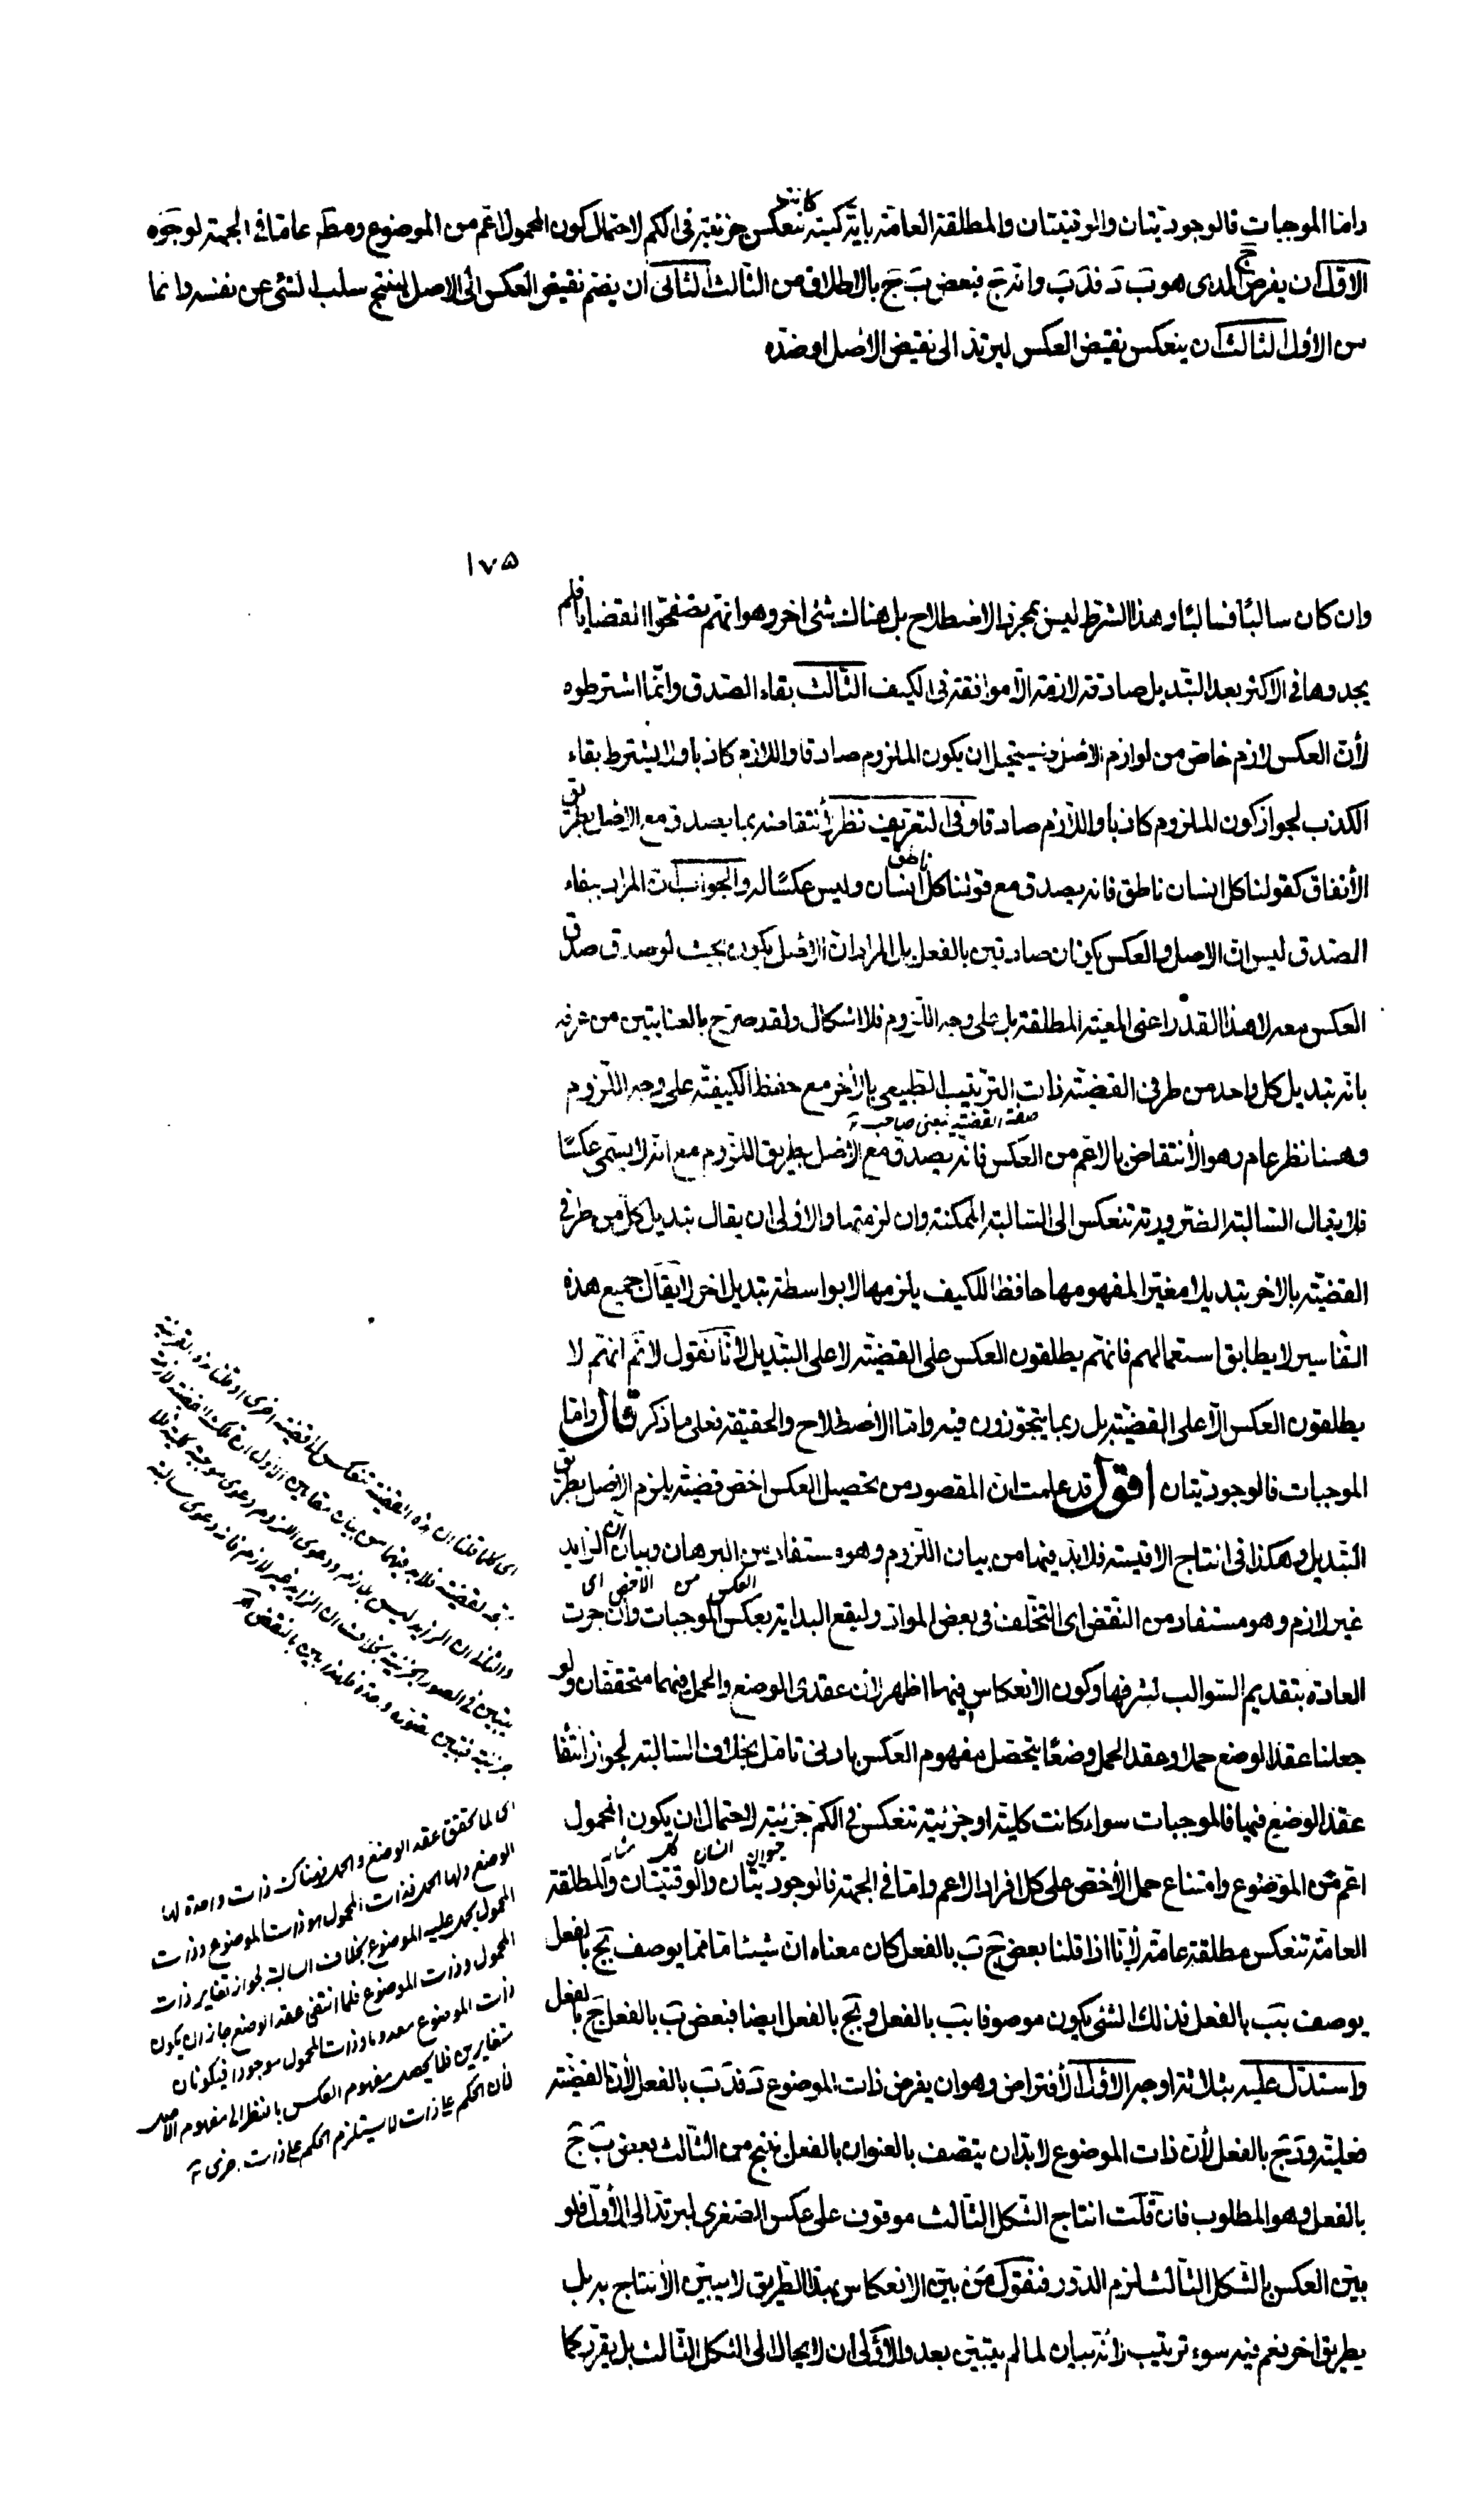 واما الموجبات فالوجوديتان والوقتيتان والمطلقة العامة باية كمية كانت تنعكس جزئية في الكم لاحتمال كون المحمول اعم من الموضوع ومطلقة عامة في الجهة لوجوه
الاول ان يفرض ج الذى هو ب د فد ب وانه ج فبعض ب ج بالاطلاق من الثالث الثانى ان يضم نقيض العكس الى الاصل لينتج سلب الشئ عن نفسه دائما
من الاول الثالث ان ينعكس نقيض العكس ليرتد الى نقيض الاصل او ضده
١٧٥
وان كان سالبا فسالبا وهذا الشرط ليس بمجرد الاصطلاح بل هناك شئ اخر وهو انهم تصفحوا القضايا فلم
يجدوها في الاكثر بعد التبديل صادقة لازمة الا موافقة في الكيف الثالث بقاء الصدق وانما اشترطوه
لأن العكس لازم خاص من لوازم الاصل ويستحيل ان يكون الملزوم صادقا واللازم كاذبا ولا يشترط بقاء
الكذب لجواز كون الملزوم كاذبا واللازم صادقا وفى التعريف نظر لأنتقاضه بما يصدق مع الاصل بطريق
الأتفاق كقولنا كل انسان ناطق فانه يصدق مع قولنا كل ناطق انسان وليس عكسا له والجواب ان المراد ببقاء
الصدق ليس ان الاصل والعكس يكونان صادقين بالفعل بل المراد ان الاصل يكون بحيث لو صدق صدق
العكس معه لا هذا القدر اعنى المعية المطلقة بل على وجه اللزوم فلا اشكال ولقد صرح بالعنايتين من عرفه
بانه تبديل كل واحد من طرفى القضية ذات الترتيب الطبيعى بالأخر مع حفظ الكيفية على وجه اللزوم
صفة القضية بمعنى صاحبة
وهنا نظر عام وهو الأنتقاض بالاعم من العكس فانه يصدق مع الاصل بطريق اللزوم مع انه لا يسمى عكسا
فلا يقال السالبة الضرورية تنعكس الى السالبة الممكنة وان لزمتها والاولى ان يقال تبديل كل من طرفى
القضية بالاخر تبديلا مغيرا لمفهومها حافظا للكيف يلزمها لا بواسطة تبديل اخر لا يقال جميع هذه
التفاسير لا يطابق استعمالهم فانهم يطلقون العكس على القضية لا على التبديل لأنا نقول لا ثم انهم لا
يطلقون العكس الا على القضية بل ربما يتجوزون فيه واما الاصطلاح والحقيقة فعلى ما ذكر قال واما
الموجبات فالوجوديتان اقول قد علمت ان المقصود من تحصيل العكس اخص قضية يلزم الاصل بطريق
التبديل وهكذا فى انتاج الاقيسة فلا بد فيهما من بيان اللزوم وهو مستفاد من البرهان وبيان ان الزايد
العكس من الاخص اى
غير لازم وهو مستفاد من النقض اى التخلف فى بعض المواد وليقع البداية بعكس الموجبات وان جرت
العادة بتقديم السوالب لشرفها وكون الانعكاس فيهما اظهر لأن عقدى الوضع والحمل فيهما متحققان ولو
جعلنا عقد الوضع حملا وعقد الحمل وضعا يتحصل مفهوم العكس بادنى تامل بخلاف السالبة لجواز انتفاء
عقد الوضع فيها فالموجبات سواء كانت كلية او جزئية تنعكس فى الكم جزئية لاحتمال ان يكون المحمول
حيوان انسان كل مثاله
اعم من الموضوع وامتناع حمل الأخص على كل افراد الاعم واما فى الجهة فالوجوديتان والوقتيتان والمطلقة
العامة تنعكس مطلقة عامة لأنا اذا قلنا بعض ج ب بالفعل كان معناه ان شيئا ما مما يوصف بج بالفعل
يوصف بب بالفعل فذلك الشئ يكون موصوفا بب بالفعل وبج بالفعل ايضا فبعض ب بالفعل ج بالفعل
واستدل عليه بثلاثة اوجه الاول الأفتراض وهو ان يفرض ذات الموضوع د فد ب بالفعل لأن القضية
فعلية ود ج بالفعل لأن ذات الموضوع لا بد ان يتصف بالعنوان بالفعل فينتج من الثالث بعض ب ج
بالفعل وهو المطلوب فان قلت انتاج الشكل الثالث موقوف على عكس الصغرى ليرتد الى الأول فلو
بين العكس بالشكل الثالث لزم الدور فنقول من بين الانعكاس بهذا الطريق لا يبين الأنتاج به بل
بطريق اخر نعم فيه سوء ترتيب لأنه بيان لما لم يتبين بعد والأولى ان لا يحال الى الشكل الثالث بل يقرر كما
اى لما تحقق عقد الوضع والحمل فهناك ذات واحدة لها
الوضع ولها الحمل فذات المحمول هو ذات الموضوع وذات
المحمول يحمل عليه الموضوع بخلاف السالبة لجواز تغاير ذات
المحمول وذات الموضوع فلما انتفى عقد الوضع جاز ان يكون
ذات الموضوع معدوما وذات المحمول موجودا فيكونان
متغايرين فلا يحصل مفهوم العكس بالنظر الى مفهوم الاصل
لأن الحكم على ذات لا يستلزم الحكم على ذات اخرى